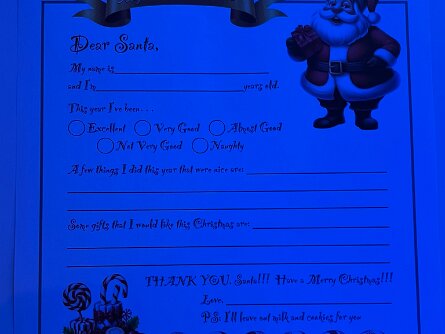 Dear Santa,
My name is
and I'm years old.
This year I've been....
Excellent Very Good Almost Good
Not Very Good Naughty
A few things I did this year that were nice are:
Some gifts that I would like this Christmas are:
THANK YOU Santa!!! Have a Merry Christmas!!!
Love,
P.S. I'll leave out milk and cookies for you